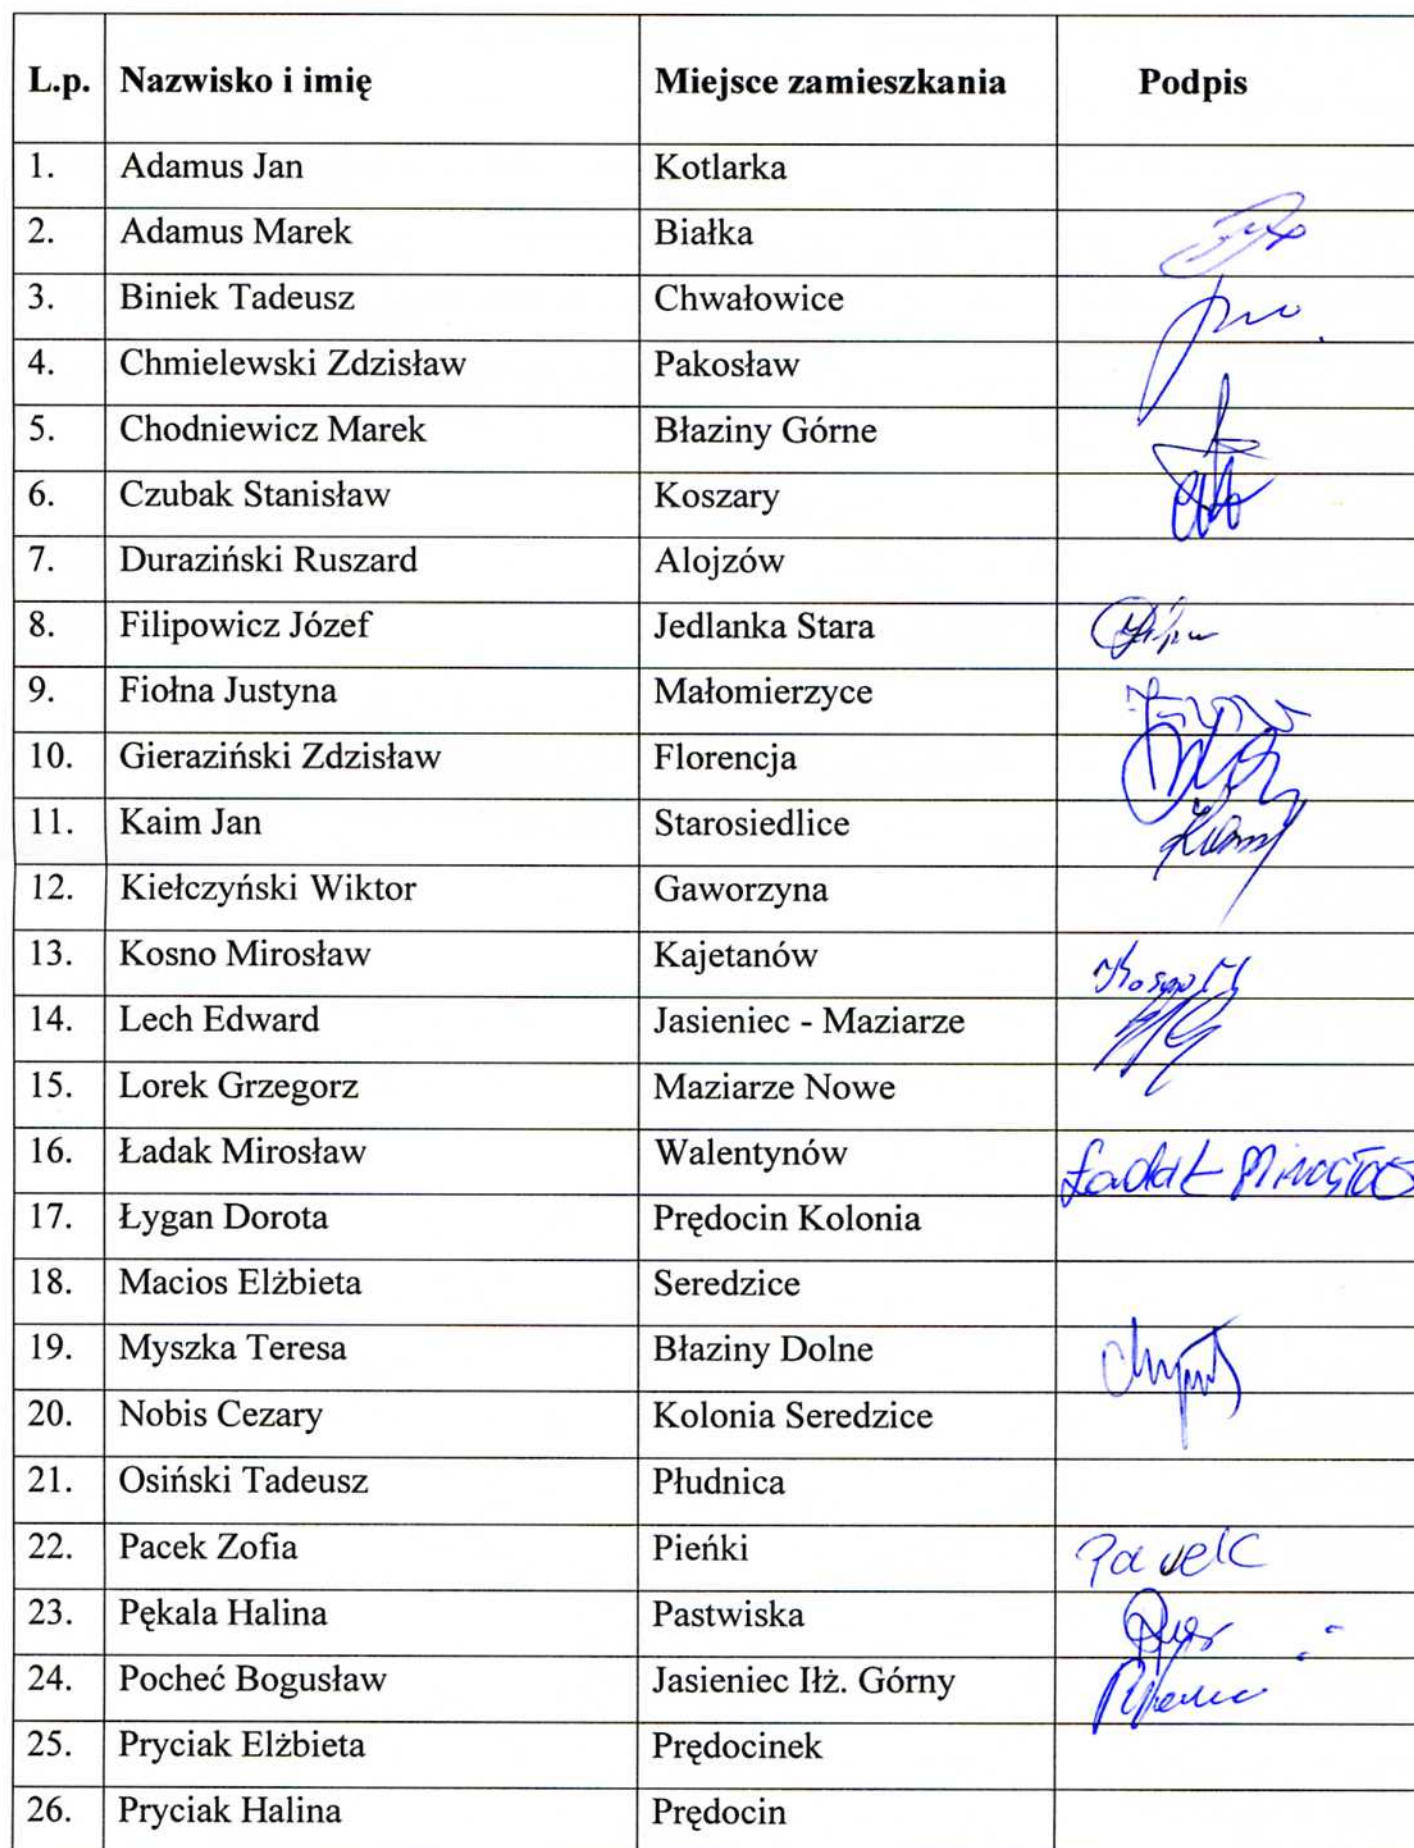 L.p. Nazwisko i imię Miejsce zamieszkania Podpis
1. Adamus Jan Kotlarka
2. Adamus Marek Białka
3. Biniek Tadeusz Chwałowice
4. Chmielewski Zdzisław Pakosław
5. Chodniewicz Marek Błaziny Górne
6. Czubak Stanisław Koszary
7. Duraziński Ruszard Alojzów
8. Filipowicz Józef Jedlanka Stara
9. Fiołna Justyna Małomierzyce
10. Gieraziński Zdzisław Florencja
11. Kaim Jan Starosiedlice
12. Kiełczyński Wiktor Gaworzyna
13. Kosno Mirosław Kajetanów Kosno M
14. Lech Edward Jasieniec - Maziarze
15. Lorek Grzegorz Maziarze Nowe
16. Ładak Mirosław Walentynów Ładak Mirosław
17. Łygan Dorota Prędocin Kolonia
18. Macios Elżbieta Seredzice
19. Myszka Teresa Błaziny Dolne
20. Nobis Cezary Kolonia Seredzice
21. Osiński Tadeusz Płudnica
22. Pacek Zofia Pieńki
23. Pękala Halina Pastwiska
24. Pocheć Bogusław Jasieniec Iłż. Górny
25. Pryciak Elżbieta Prędocinek
26. Pryciak Halina Prędocin